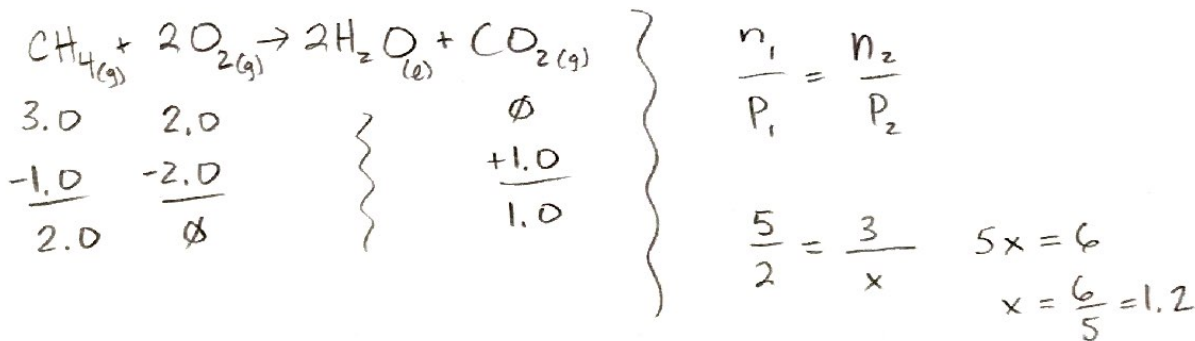 CH₄(g) + 2O₂(g) → 2H₂O(ℓ) + CO₂(g)
3.0 2.0 ∅
-1.0 -2.0 +1.0
2.0 ∅ 1.0
n₁/P₁ = n₂/P₂
5/2 = 3/x 5x = 6
x = 6/5 = 1.2